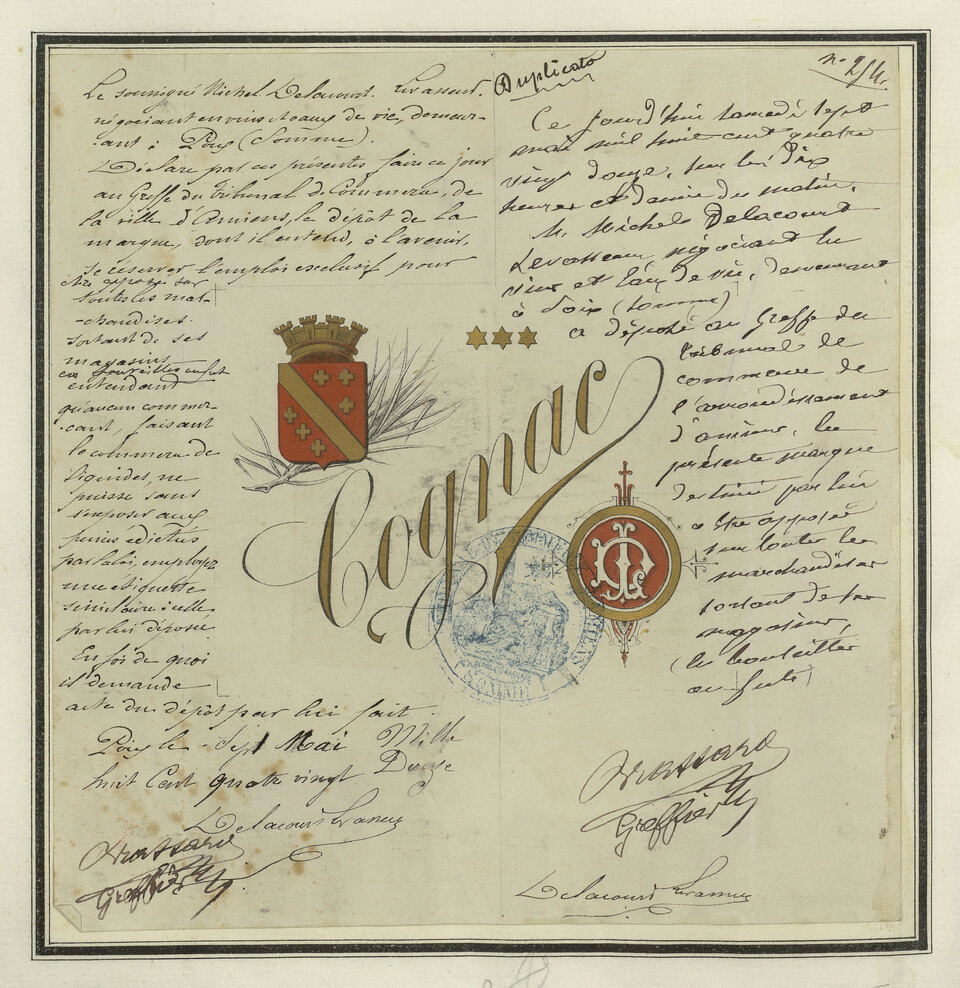 Le soussigné Michel Delacourt Levasseur.
négociant en vins et eaux de vie, demeur-
-ant à Poix (Somme).
Déclare par ces présentes, faire ce jour
au Greffe du Tribunal de Commerce, de
la ville d'Amiens, le dépôt de la
marque, dont il entend, à l'avenir,
se réserver l'emploi exclusif, pour
être apposée sur
toutes les mar-
-chandises
sortant de ses
magasins
en bouteilles ou fut
entendant
qu'aucun commer-
-cant, faisant
le commerce de
liquides, ne
puisse sans
s'exposer aux
peines édictées
par la loi, employer
une étiquette
similaire à celle
par lui déposée
En foi de quoi
il demande
acte du dépôt par lui fait.
Poix le Sept Mai Mille
huit Cent quatre vingt Douze
Delacourt Levasseur
Greffier
Duplicata
n° 254.
Ce jourd'hui samedi sept
mai mil huit cent quatre
vingt douze, sur les dix
heures et demie du matin,
M. Michel Delacourt
Levasseur, négociant en
vins et Eau de vie, demeurant
à Poix (Somme)
a déposé au Greffe du
tribunal de
commerce de
l'arrondissement
d'amiens, la
présente marque
destinée par lui
à être apposée
sur toutes les
marchandises
sortant de ses
magasins,
(en bouteilles
ou futs)
Greffier
Delacourt Levasseur
Cognac
DL
AMIENS
SOMME